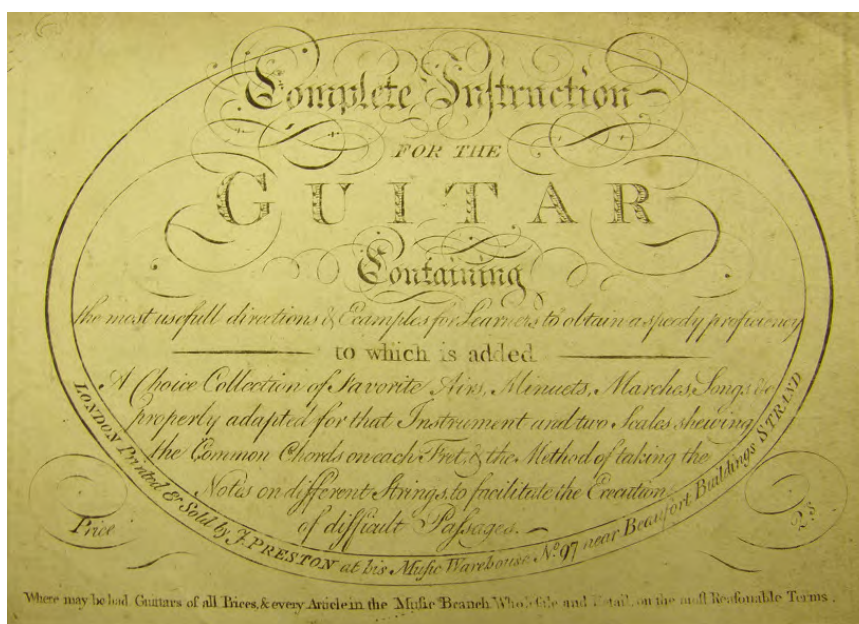 Complete Instruction
FOR THE
GUITAR
Containing
the most usefull directions & Examples for Learners to obtain a speedy proficiency
to which is added
A Choice Collection of Favorite Airs, Minuets, Marches, Songs &c
properly adapted for that Instrument and two Scales shewing
the Common Chords on each Fret, & the Method of taking the
Notes on different Strings, to facilitate the Execution
of difficult Paſsages.
LONDON Printed & Sold by J. PRESTON at his Muſic Warehouse No. 97 near Beaufort Buildings STRAND
Price
2s
Where may be had Guittars of all Prices, & every Article in the Muſic Branch Wholeſale and Retail, on the moſt Reaſonable Terms.